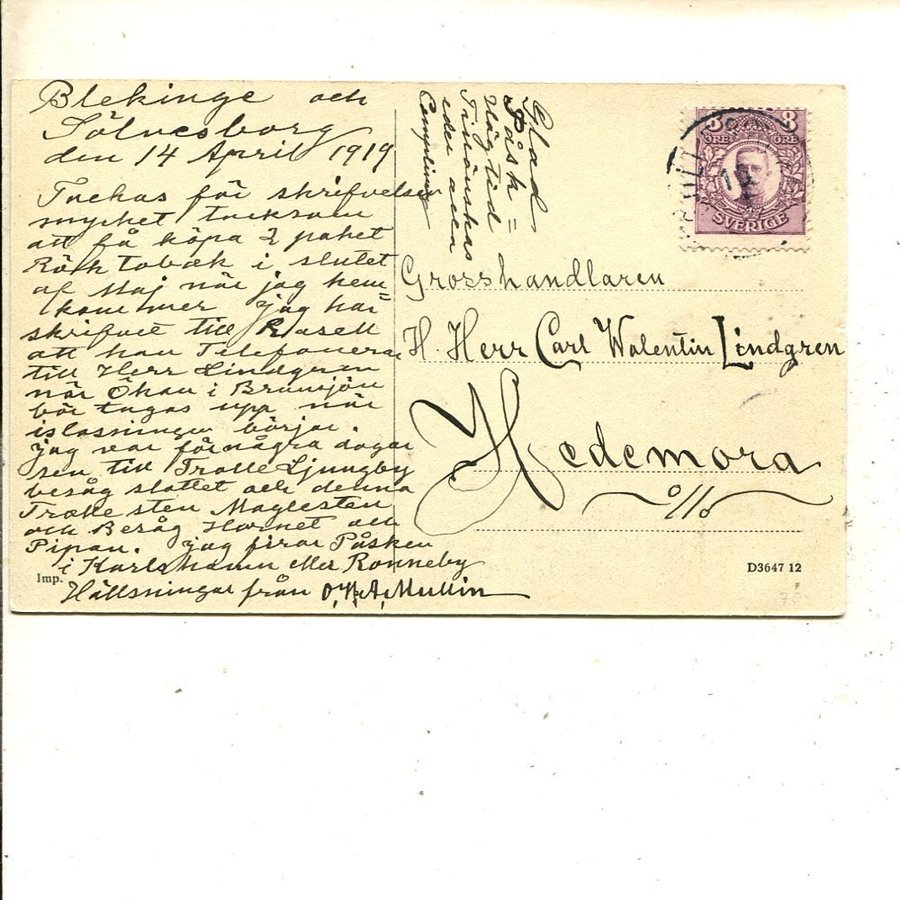 Blekinge och
Sölvesborg
den 14 April 1919
Tackas för skrifvelsen
mycket tacksam
att få köpa 2 paket
Röktobak i slutet
af Maj när jag hem=
kommer jag har
skrifvit till Rasell
att han Telefonerar
till Herr Lindgren
när Ökan i Brunsjön
bör tagas upp när
islossningen börjar.
jag var för några dagar
sen till Trolle Ljungby
besåg slottet och denna
Trolle sten Maglesten
och Besåg Hornet och
Pipan. jag firar Påsken
i Karlshamn eller Ronneby
Hällsningar från O,H,A,Mullin
Glad
Påsk=
Hågtid
Tillönskas
eder allen
Grosshandlaren
H. Herr Carl Walentin Lindgren
Hedemora
8 8
ÖRE ÖRE
SVERIGE
Imp.
D3647 12